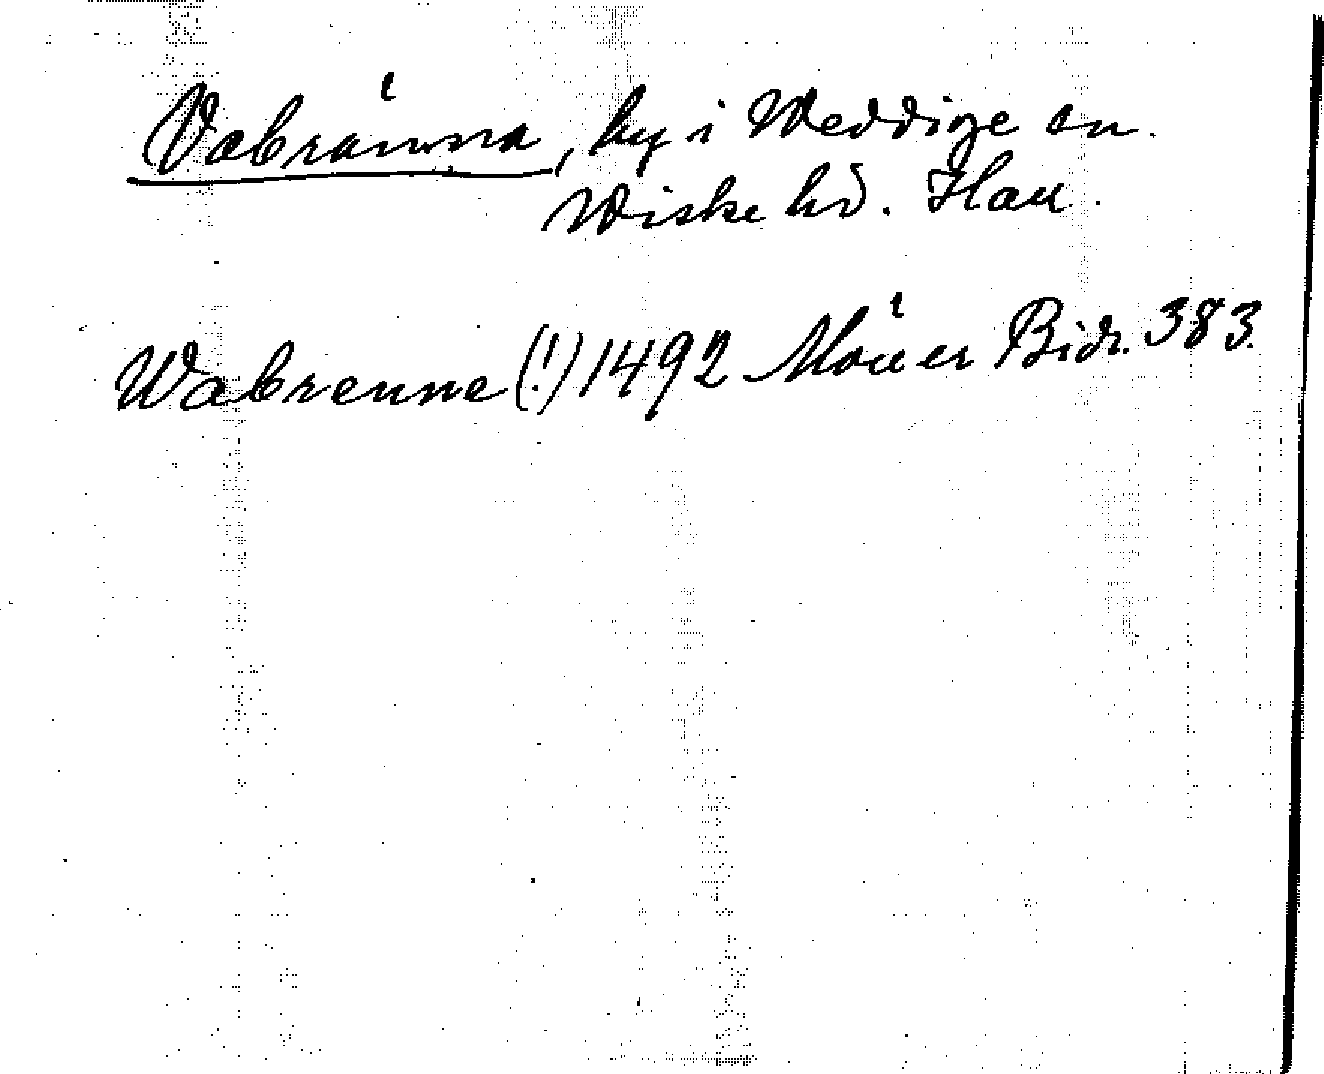 Vabränna, by i Weddige sn.
Wiske hd. Hall.
Wabrenne (!) 1492 Möller Bidr. 383.